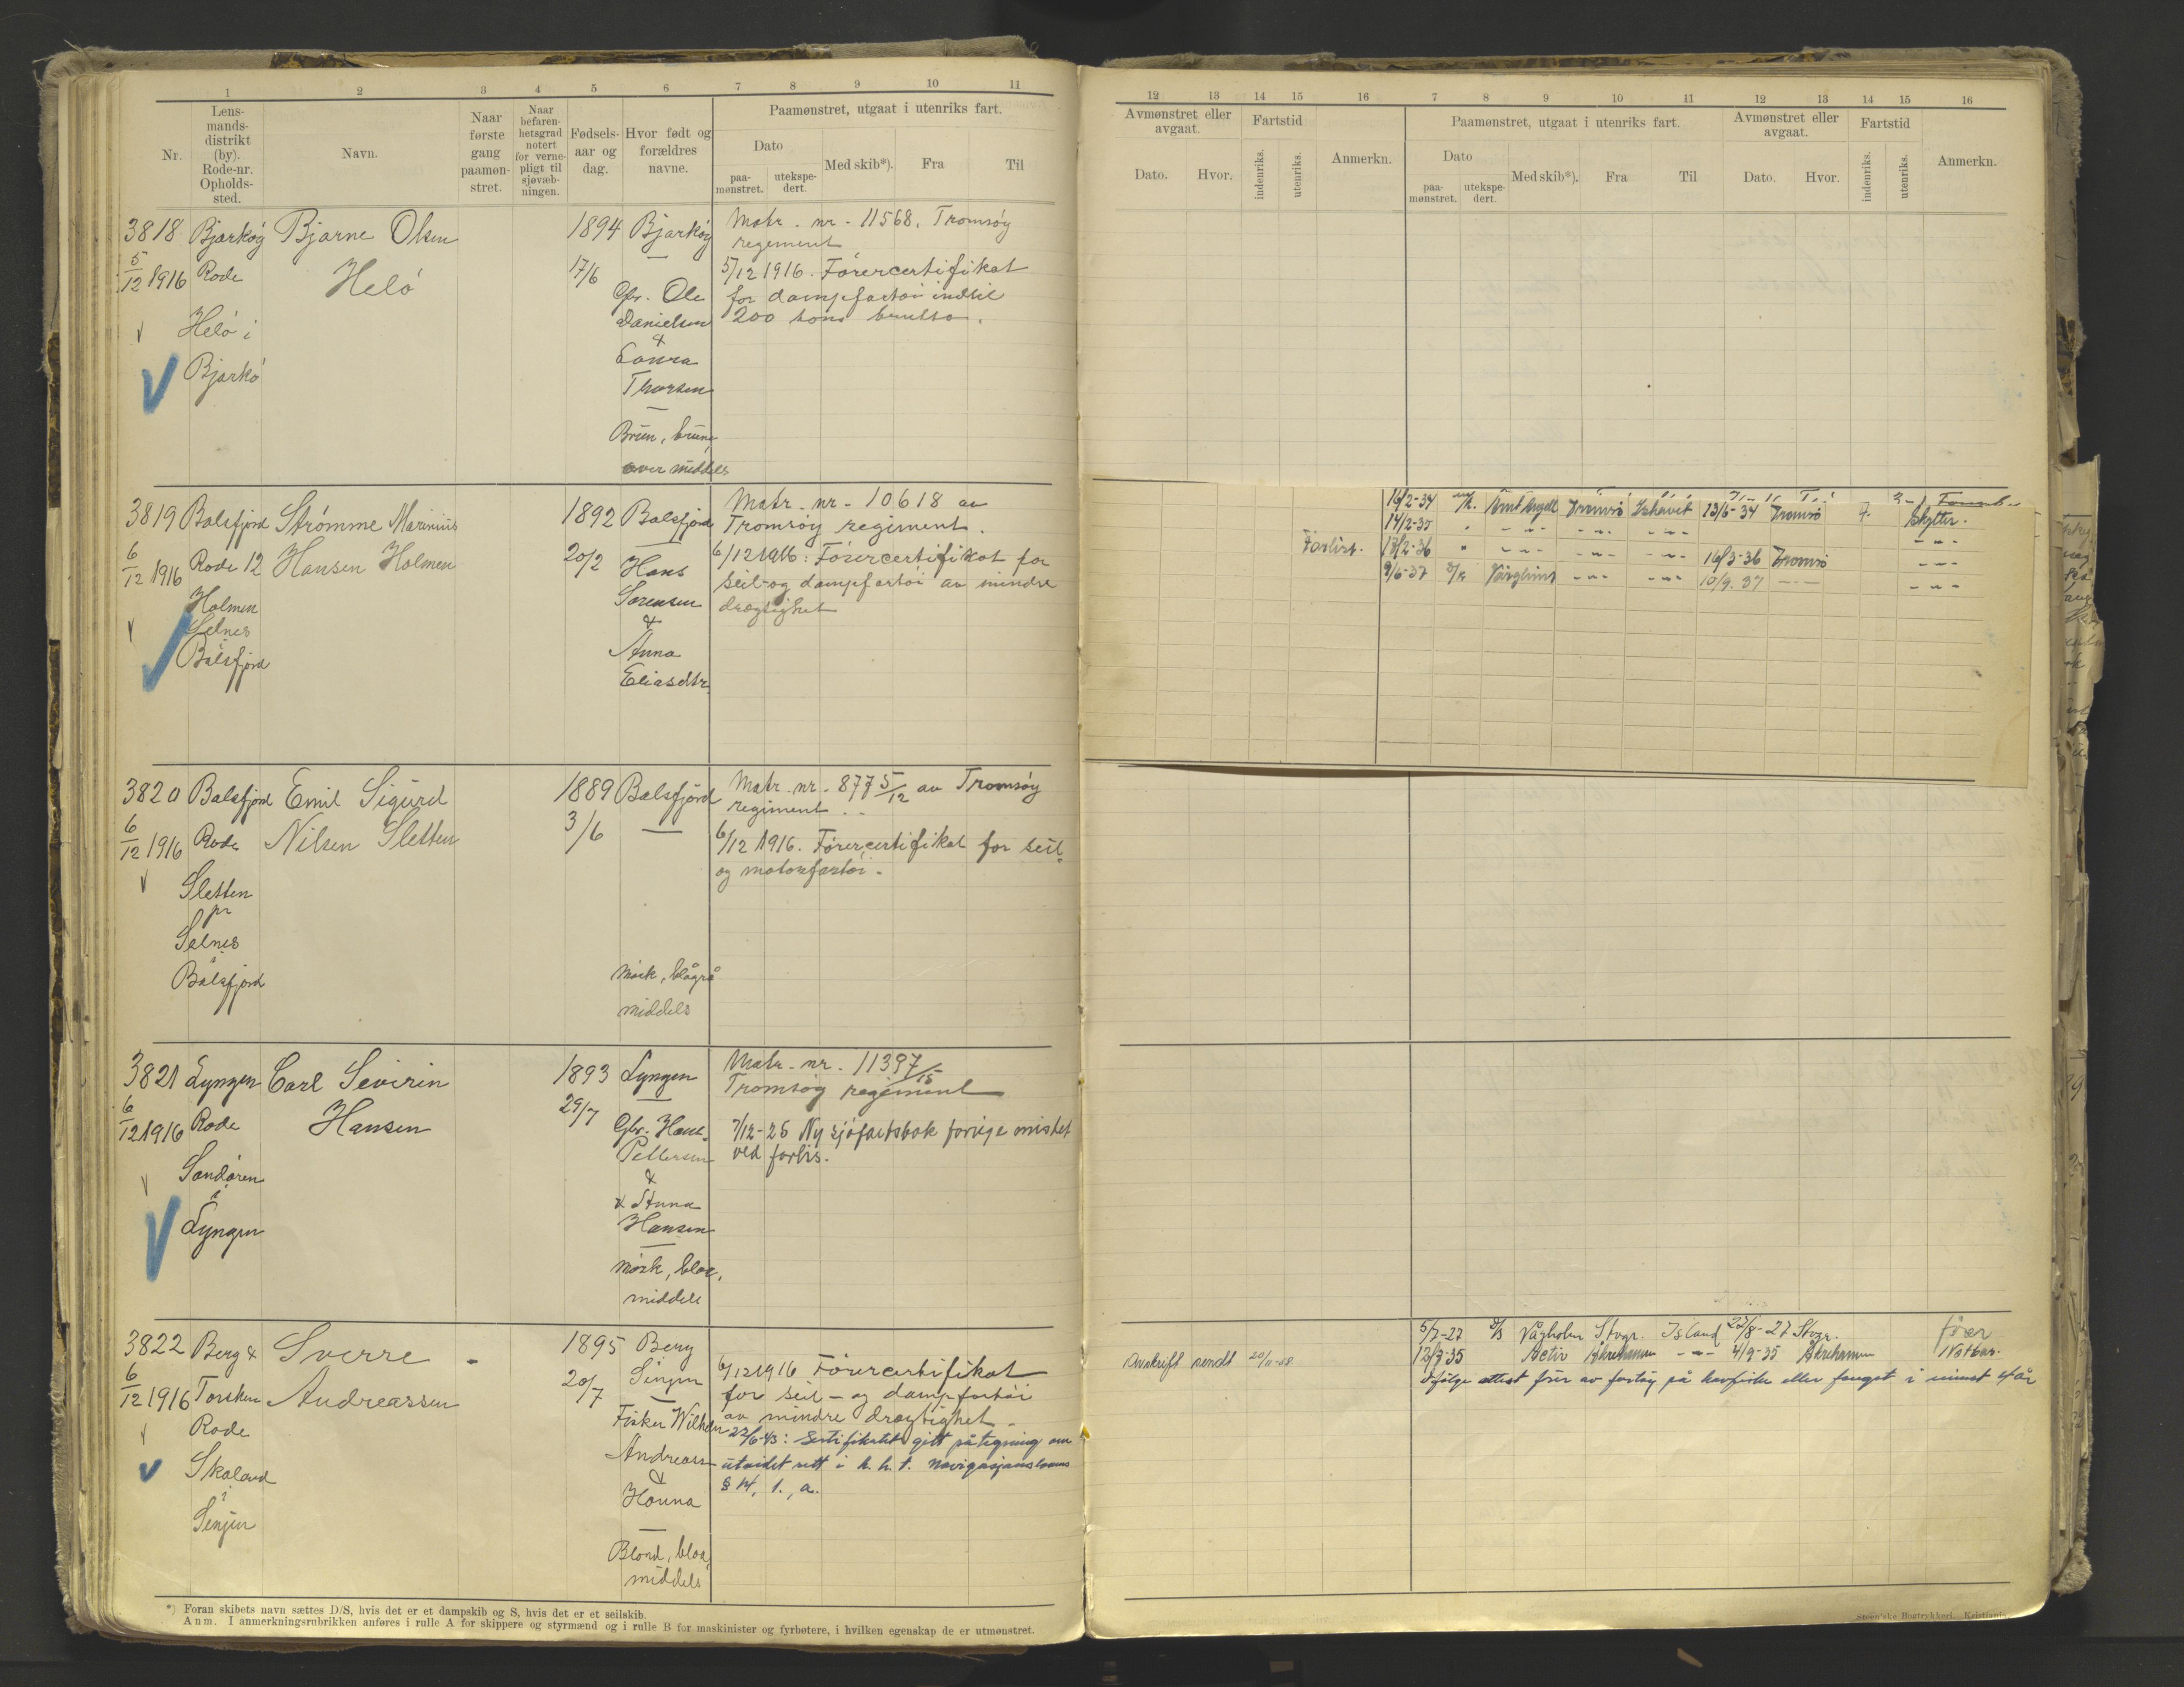 1 2 3 4 5 6 7 8 9 10 11
Nr.
Lens-
mands-
distrikt
(by).
Rode-nr.
Opholds-
sted.
Navn.
Naar
første
gang
paamøn-
stret.
Naar
befaren-
hetsgrad
notert
for verne-
pligt til
sjøvæb-
ningen.
Fødsels-
aar og
dag.
Hvor født og
forældres
navne.
Paamønstret, utgaat i utenriks fart.
Dato
paa-
mønstret.
utekspe-
dert.
Med skib*).
Fra
Til
3818 Bjarkøy Bjarne Olsen 1894 Bjarkøy
5/12 1916 Rode Helö 17/6
Helö i
Bjarkö
Gbr. Ole
Danielsen
&
Laura
Thorsen
Brun, brune
over middels
Matr. nr. 11568. Tromsöy
regement
5/12 1916. Förercertifikat
for dampfartöi indtil
200 tons brutto.
3819 Balsfjord Strömme Marinius 1892 Balsfjord
6/12 1916 Rode 12 Hansen Holmen 20/2
Holmen
Selnes
Balsfjord
Hans
Sörensen
&
Anna
Eliasdtr.
Matr. nr. 10618 av
Tromsöy regiment.
6/12 1916: Förercertifikat for
seil- og dampfartöi av mindre
drægtighet
3820 Balsfjord Emil Sigurd 1889 Balsfjord
6/12 1916 Rode Nilsen Sletten 3/6
Sletten
pr
Selnes
i
Balsfjord
Mörk, blågrå
middels
Matr. nr. 877 5/12 av Tromsöy
regiment.
6/12 1916. Förercertifikat for seil-
og motorfartöi.
3821 Lyngen Carl Severin 1893 Lyngen
6/12 1916 Rode Hansen 29/7
Sandören
i
Lyngen
Gbr. Hans
Pettersen
&
& Anna
Hansen
Mörk, blaa,
middels
Matr. nr. 11397/15
Tromsöy regiment
7/12-25 Ny sjöfartsbok forrige mistet
ved forlis.
3822 Berg & Sverre - 1895 Berg
6/12 1916 Torsken Andreassen 20/7 Senjen
Rode
Skaland
i
Senjen
Fisker Wilhelm
Andreassen
&
Hanna
Blond, blaa,
middels
6/12 1916 Förercertifikat
for seil- og dampfartöi
av mindre drægtighet.
22/6-43: Sertifikatet gitt påtegning om
utvidet rett i h.h.t. Navigasjonslovens
§ 14, 1., a.
*) Foran skibets navn sættes D/S, hvis det er et dampskib og S, hvis det er et seilskib.
Anm. I anmerkningsrubrikken anføres i rulle A for skippere og styrmænd og i rulle B for maskinister og fyrbøtere, i hvilken egenskap de er utmønstret.
12 13 14 15 16 7 8 9 10 11 12 13 14 15 16
Avmønstret eller
avgaat.
Dato.
Hvor.
Fartstid
indenriks.
utenriks.
Anmerkn.
Paamønstret, utgaat i utenriks fart.
Dato
paa-
mønstret.
utekspe-
dert.
Med skib*).
Fra
Til
Avmønstret eller
avgaat.
Dato.
Hvor.
Fartstid
indenriks.
utenriks.
Anmerkn.
16/2-34 Tromsö Ishavet 13/5-34 Tromsö Skytter.
14/2-35 " - " - - " - - " - - " -
Forlist. 17/2-36 " - " - - " - - " - 16/3-36 Tromsö - " -
9/6-37 - " - - " - 10/9-37 - " - - " -
5/7-27 Vågholm Stvgr. Island 22/8-27 Stvgr.
Avskrift sendt 20/11-58 12/7-35 Activ Åkrehamn - " - 4/9-35 Åkrehamn Notbas.
Ifölge attest förer av fartöy på havfiske eller fangst i minst 4 år
Steen'ske Bogtrykkeri. Kristiania